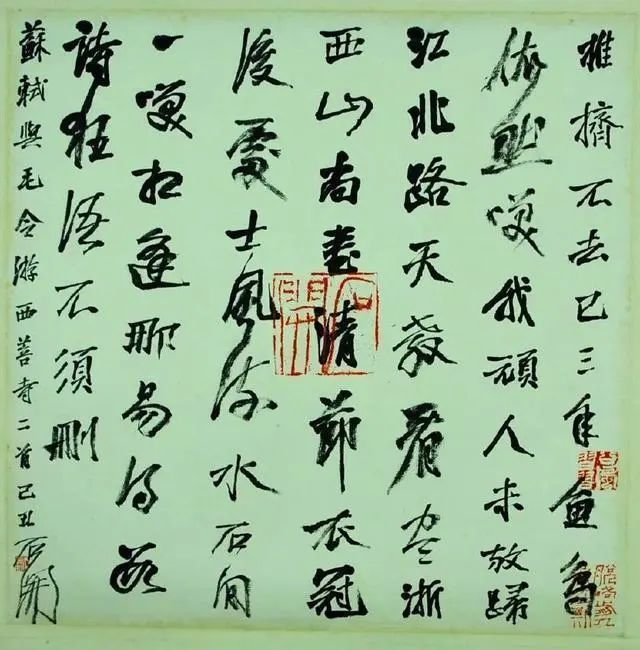 推擠不去已三年魚鳥
依然咲我頑人未放歸
江北路天教看盡浙
西山尚書清節衣冠
後處士風流水石間
一咲相逢那易得數
詩狂語不須刪
蘇軾與毛令游西菩寺二首己丑石開
石開